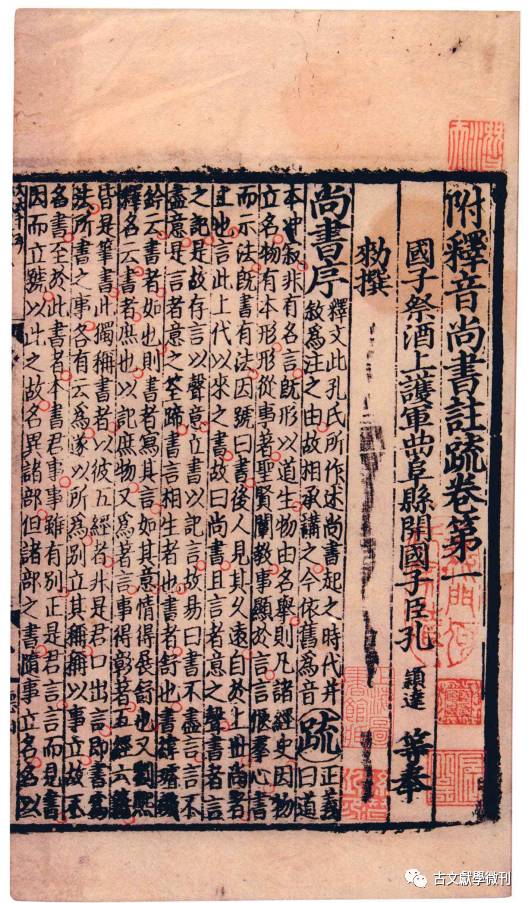 附釋音尚書註疏卷第一
國子祭酒上護軍曲阜縣開國子臣孔 穎達 等奉
勑撰
尚書序 釋文此孔氏所作述尚書起之時代并
敘爲注之由故相承講之今依舊爲音 疏 正義
曰道
本沖寂非有名言既形以道生物由名舉則凡諸經史因物
立名物有本形形從事著聖賢闡教事顯於言言愜羣心書
而示法既書有法因號曰書後人見其久遠自於上世尚者
上也言此上代以來之書故曰尚書且言者意之聲書者言
之記是故存言以聲意立書以記言故易曰書不盡言言不
盡意是言者意之筌蹄書言相生者也書者舒也書緯璿璣
鈐云書者如也則書者寫其言如其意情得展舒也又劉熙
釋名云書者庶也以記庶物又爲著言事得彰著五經六籍
皆是筆書此獨稱書者以彼五經者非是君口出言即書爲
法所書之事各有云爲遂以所爲別立其稱稱以事立故不
名書至於此書者本書君事事雖有別正是君言言而見書
因而立號以此之故名異諸部但諸部之書隨事立名名以
古文獻學微刊